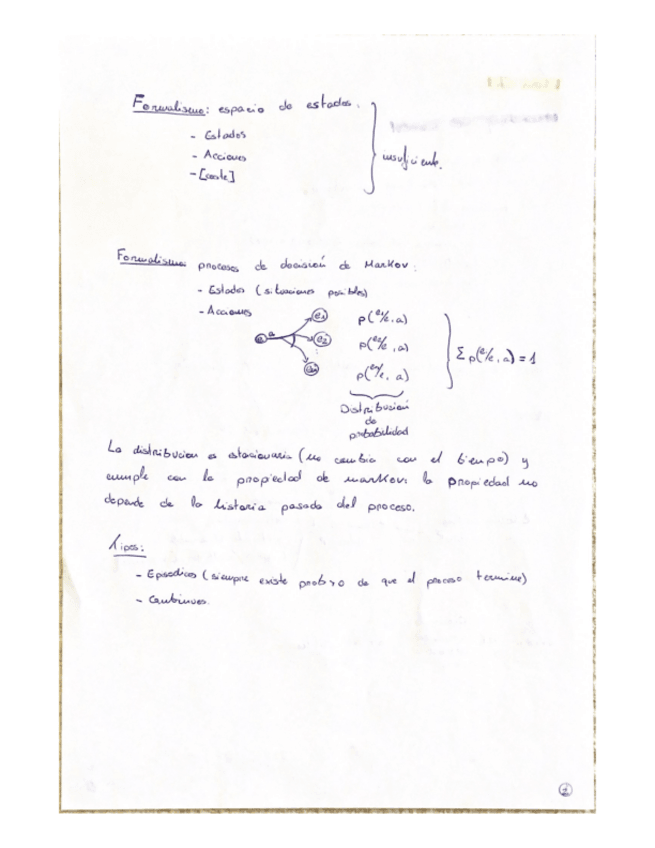 Formalismo: espacio de estados.
- Estados
- Acciones
- [coste]
insuficiente.
Formalismo: procesos de decisión de Markov:
- Estados (situaciones posibles)
- Acciones
e a e1 e2
p(e1/e, a)
p(e2/e, a)
p(en/e, a)
Σ p(ei/e, a) = 1
Distribución
de
probabilidad
La distribucion es estacionaria (no cambia con el tiempo) y
cumple con la propiedad de markov: la propiedad no
depende de la historia pasada del proceso.
Tipos:
- Episodicos (siempre existe prob > 0 de que el proceso termine)
- Continuos.
1